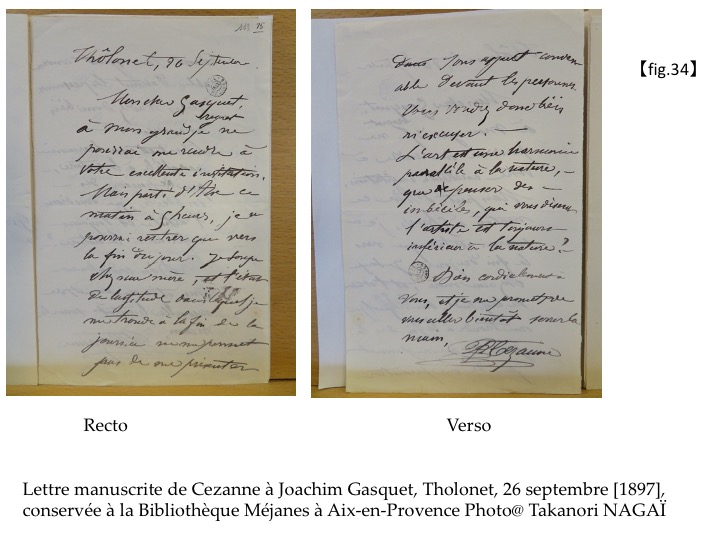 113 75
Thôlonet, 26 Septembre.
Mon cher Gasquet,
regret
à mon grand je ne
pourrai me rendre à
votre excellente invitation.
Mais parti d'Aix ce
matin à 5 heures, je ne
pourrai rentrer que vers
la fin du jour. Je soupe
chez ma mère, et l'état
de lassitude dans lequel je
me trouve à la fin de la
journée ne me permet
pas de me présenter
dans un aspect conven
able devant les personnes.
Vous voudrez donc bien
m'excuser. —
L'art est une harmonie
parallèle à la nature, —
que penser des —
imbéciles, qui vous disent
l'artiste est toujours
inférieur à la nature?
Bien cordialement à
vous, et je me promets de
vous aller bientôt serrer la
main,
P Cezanne
【fig.34】
Recto
Verso
Lettre manuscrite de Cezanne à Joachim Gasquet, Tholonet, 26 septembre [1897],
conservée à la Bibliothèque Méjanes à Aix-en-Provence Photo@ Takanori NAGAÏ